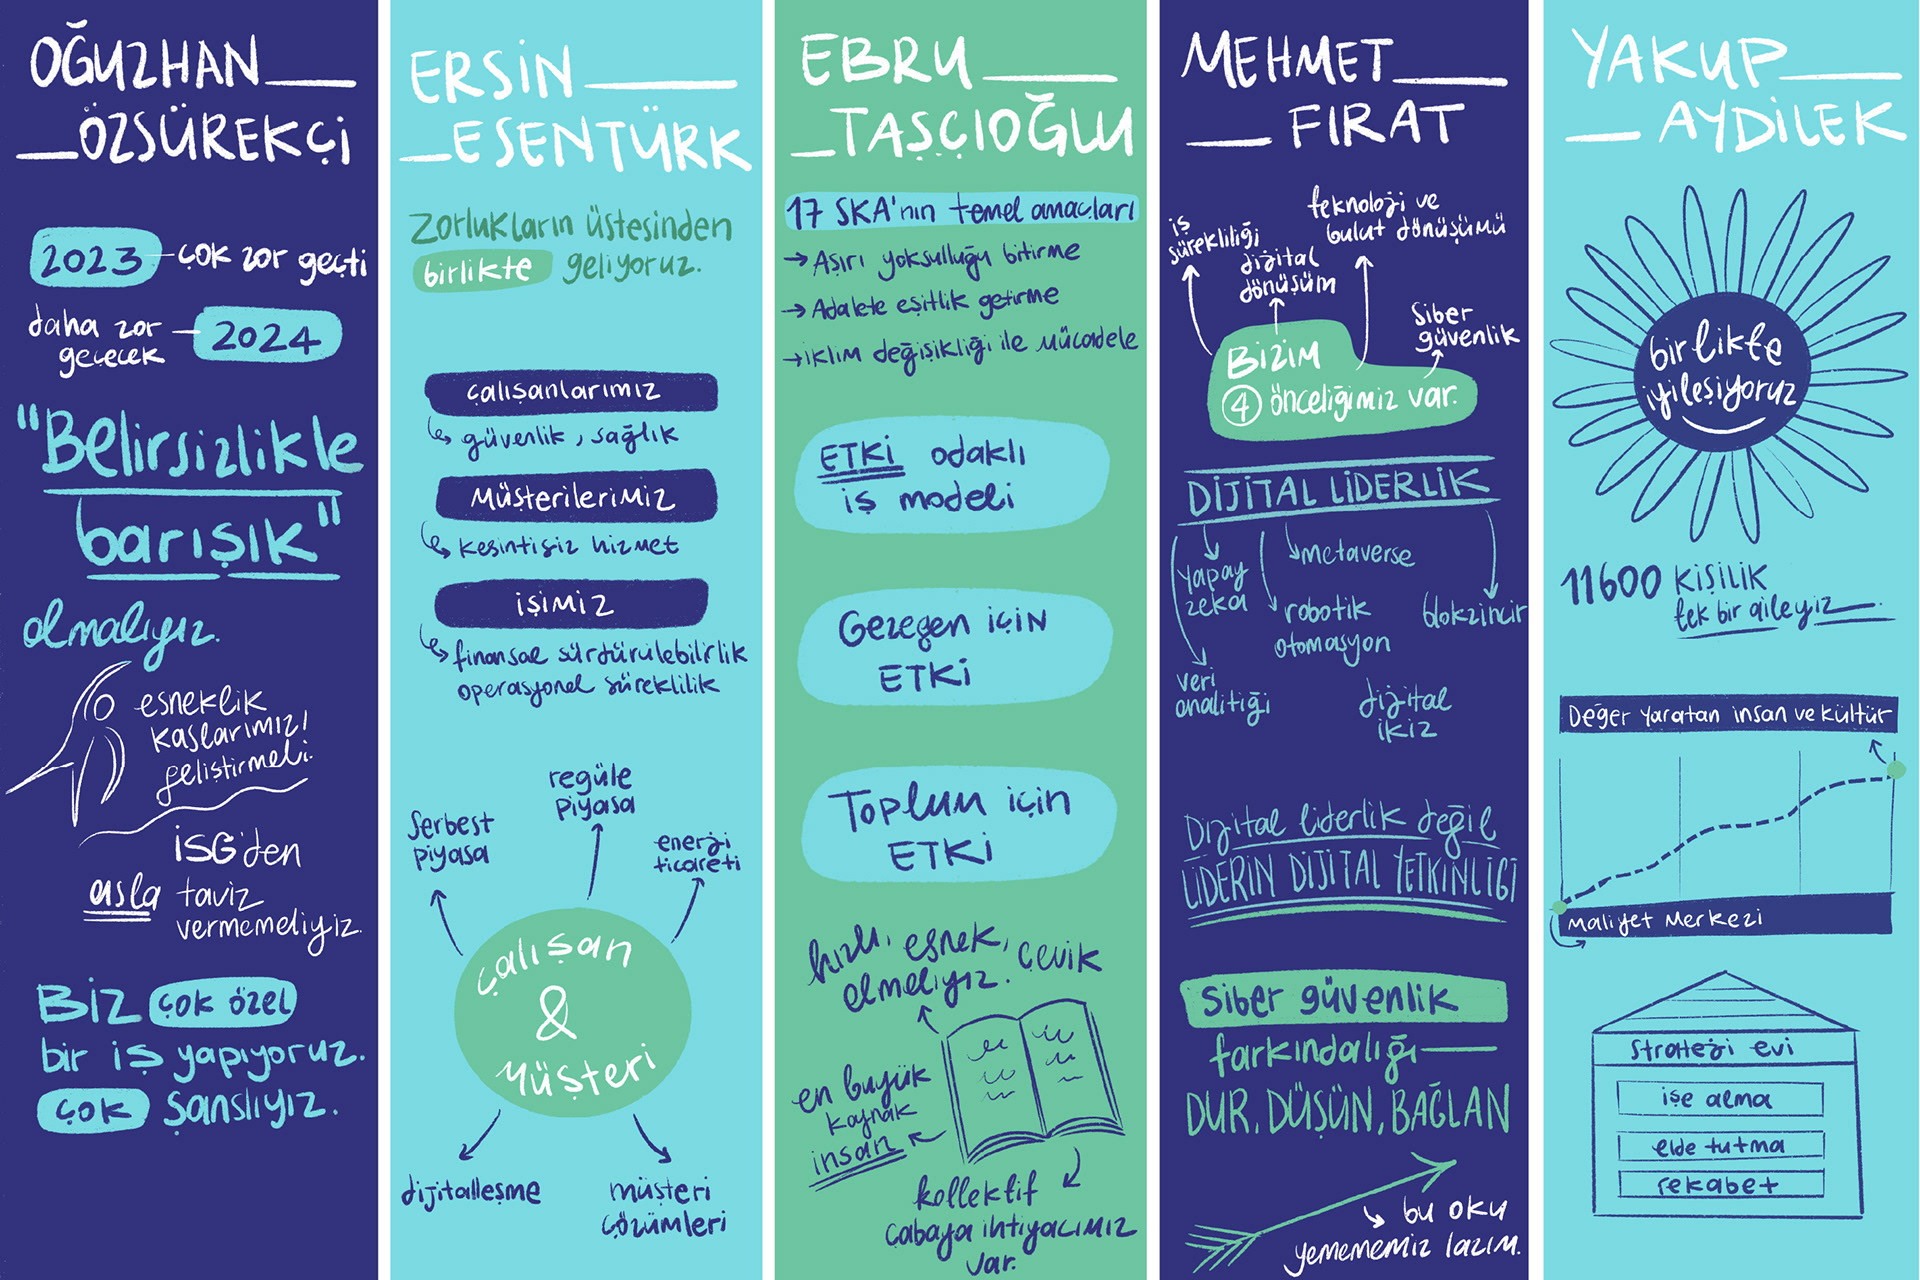 OĞUZHAN
ÖZSÜREKÇİ
2023 çok zor geçti
daha zor
geçecek
2024
"Belirsizlikle
barışık"
olmalıyız.
esneklik
kaslarımızı
geliştirmeli.
İSG'den
asla taviz
vermemeliyiz.
BİZ çok özel
bir iş yapıyoruz.
çok şanslıyız.
ERSİN
ESENTÜRK
Zorlukların üstesinden
birlikte geliyoruz.
çalışanlarımız
güvenlik, sağlık
Müşterilerimiz
kesintisiz hizmet
işimiz
finansal sürdürülebilirlik
operasyonel süreklilik
serbest
piyasa
regüle
piyasa
enerji
ticareti
çalışan
&
Müşteri
dijitalleşme
müşteri
çözümleri
EBRU
TAŞÇIOĞLU
17 SKA'nın temel amaçları
Aşırı yoksulluğu bitirme
Adalete eşitlik getirme
iklim değişikliği ile mücadele
ETKİ odaklı
iş modeli
Gezegen için
ETKİ
Toplum için
ETKİ
hızlı, esnek, çevik
olmalıyız.
en büyük
kaynak
insan
kollektif
çabaya ihtiyacımız
var.
MEHMET
FIRAT
iş
sürekliliği
dijital
dönüşüm
teknoloji ve
bulut dönüşümü
siber
güvenlik
BİZİM
4 önceliğimiz var.
DİJİTAL LİDERLİK
yapay
zeka
metaverse
robotik
otomasyon
blokzincir
veri
analitiği
dijital
ikiz
Dijital liderlik değil
LİDERİN DİJİTAL YETKİNLİĞİ
Siber güvenlik
farkındalığı
DUR, DÜŞÜN, BAĞLAN
bu oku
yemememiz lazım.
YAKUP
AYDİLEK
birlikte
iyileşiyoruz
11600 KİŞİLİK
tek bir aileyiz
Değer yaratan insan ve kültür
Maliyet Merkezi
Strateji evi
işe alma
elde tutma
rekabet